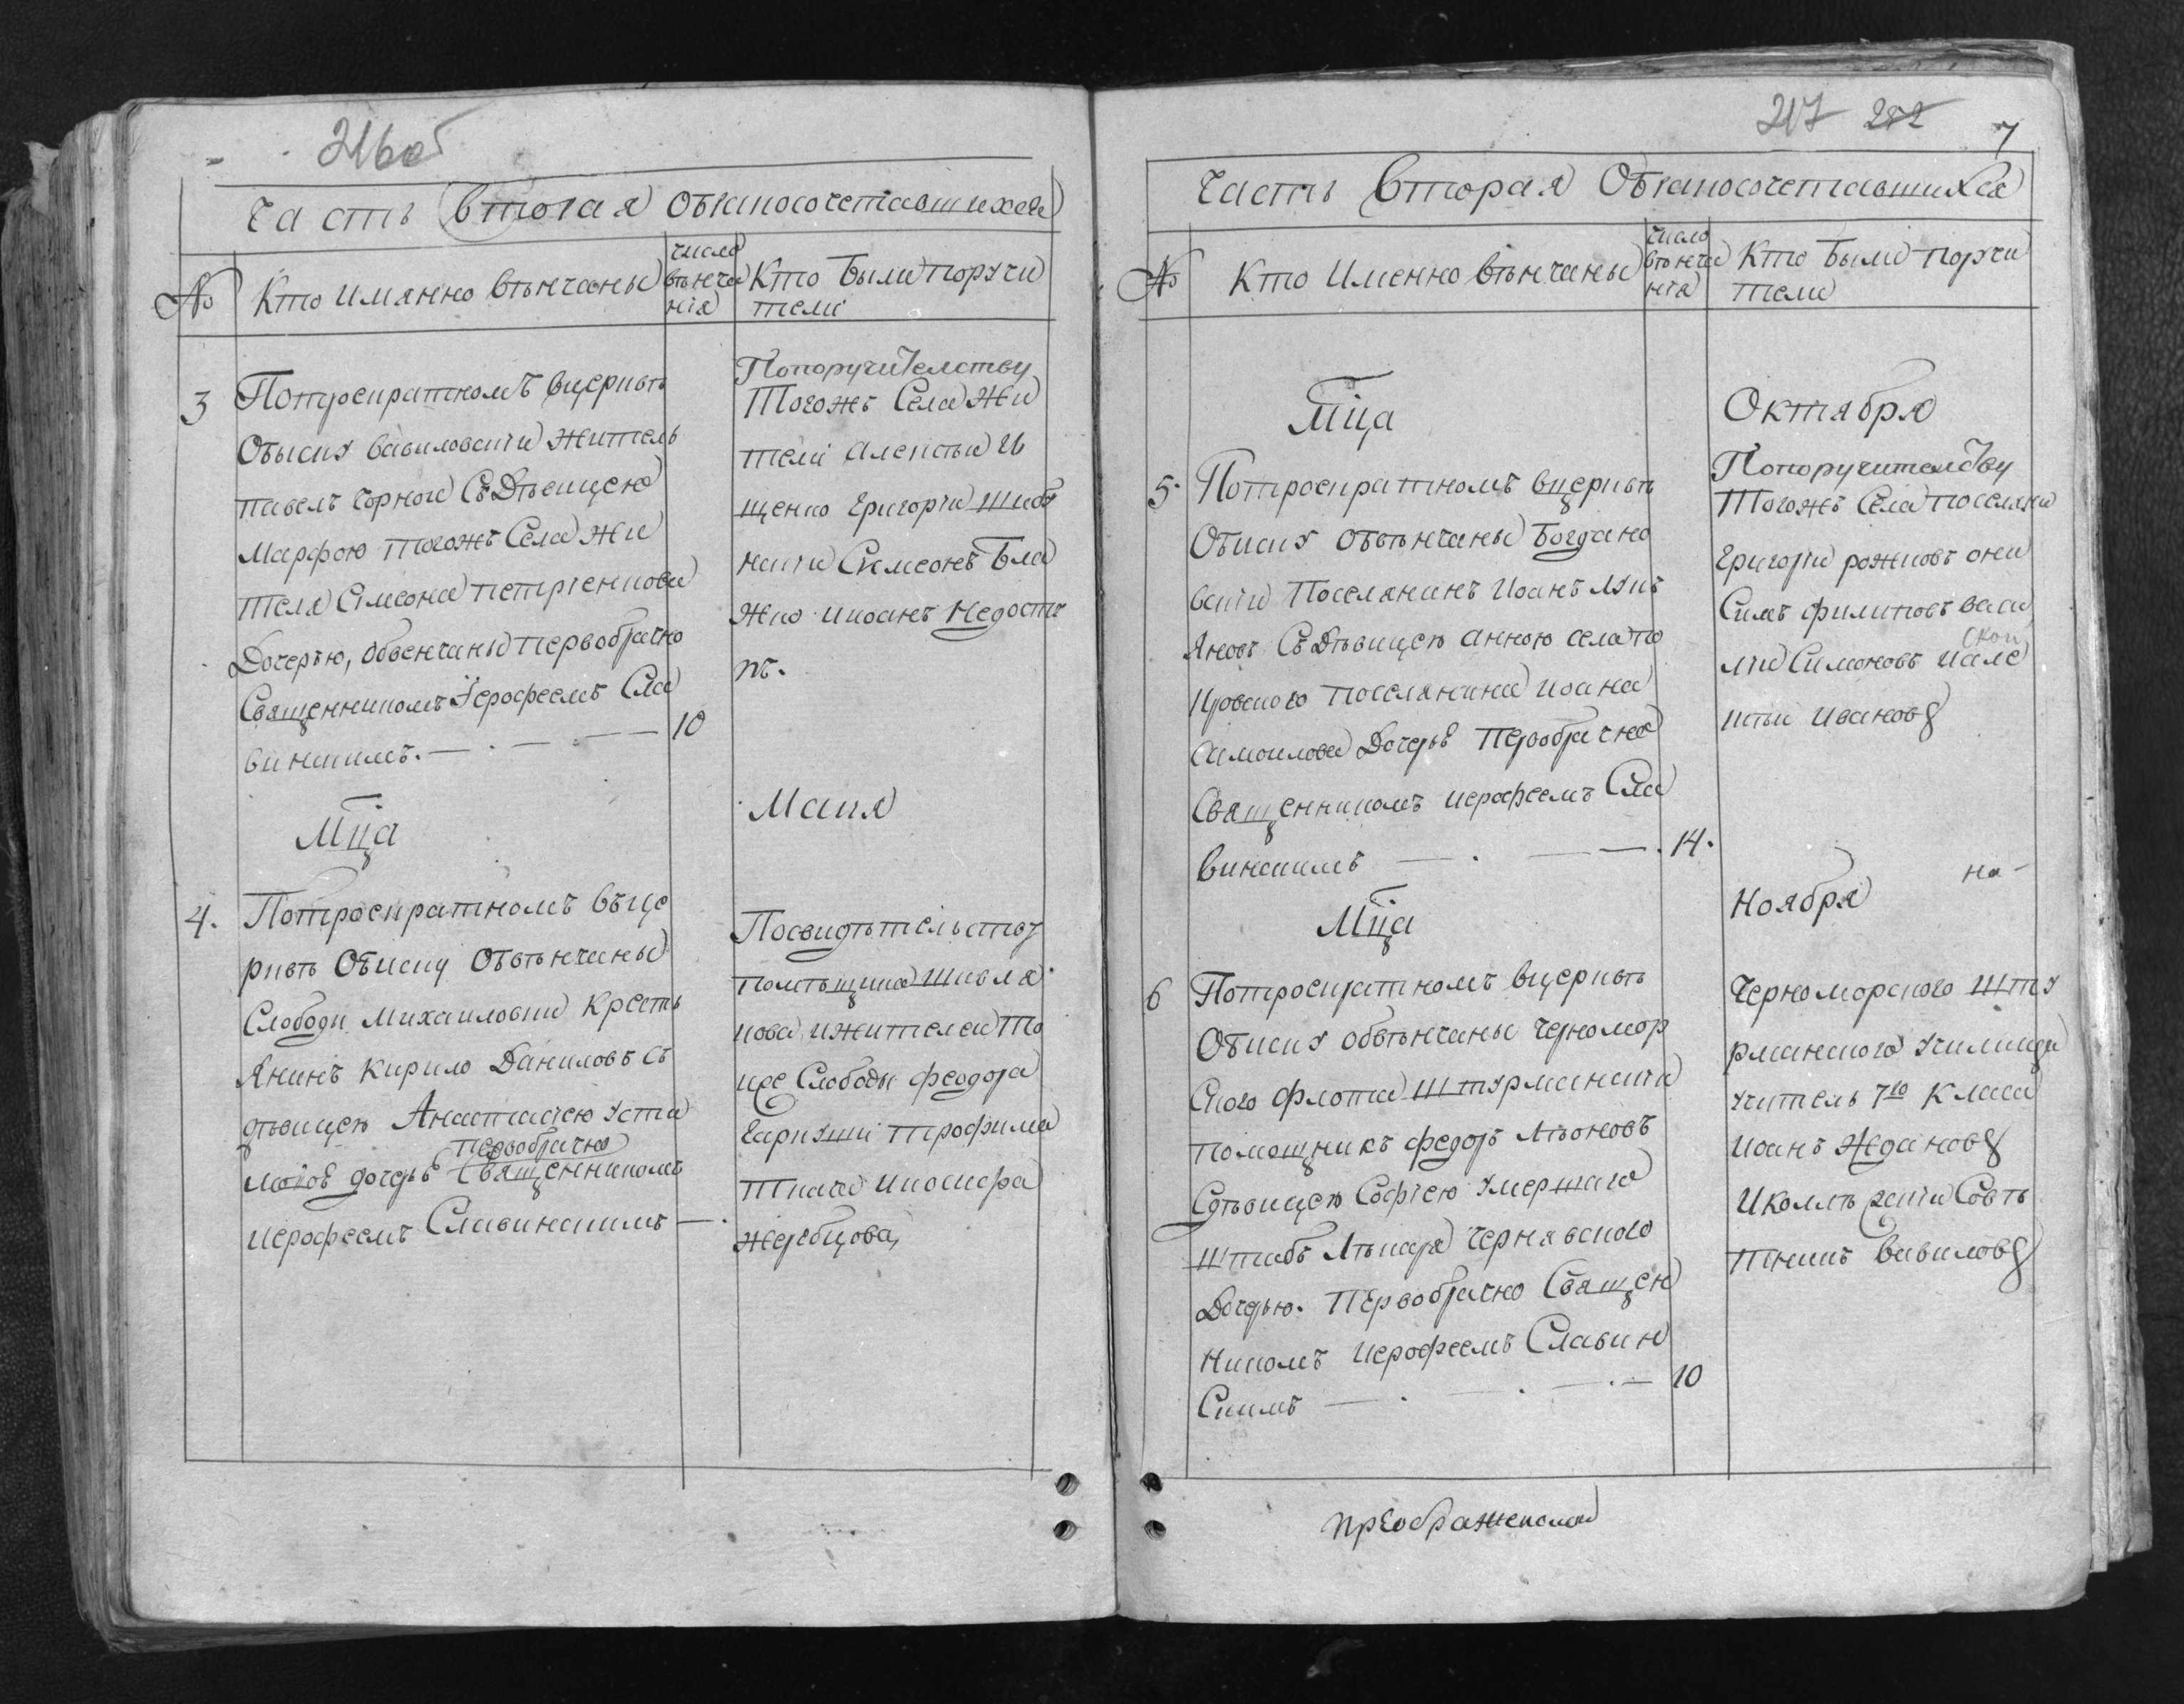 216об
Часть Вторая Обракосочетавшихся
№
Кто Имянно Вѣнчаны
число вѣнча нія
Кто Были поручи тели
3
Потроекратномъ вцерквѣ
Обыску Вавиловскій житель
павелъ Чорной Съ Дѣвицею
Марфою тогожъ Села жи
теля Симеона
Дочерью, обвенчаны первобрачно
Священникомъ Іерофеемъ Сла
винскимъ. — . — . — — 10
Попоручителству
Тогожъ Села Жи
тели Алексѣй И
щенко Григорій
Симеонъ Бла
жко Иоанъ Недоступ
ъ.
Мца
Маия
4.
Потроекратномъ Въце
рквѣ Обиску Обвѣнчаны
Слободи Михаиловки Кресть
Янинъ Кирило Даниловъ съ
дѣвицею Анастасіею Уста
первобрачно
дочерью Священникомъ
Иерофеемъ Славинскимъ — .
Посвидѣтельству
помѣщика Шкля
а и жителей То
йже Слободы Феодора
Трофима
Ткача и Иосифа
Жеребцова,
217 282 7
Часть Вторая Обракосочетавшихся
№
Кто Именно Вѣнчаны
число вѣнча нія
Кто Были поручи тели
Мца
Октября
5.
Потроекратномъ вцерквѣ
Обиску обвѣнчаны Богдано
вскій Поселянинъ Иоанъ Лукь
Яновъ Съ Дѣвицею Анною села по
кровского поселянина Иоана
Самоилова Дочерью Первобрачно
Священникомъ иерофеемъ Сла
винскимъ — . — — . 14.
Попоручителству
Тогожъ Села поселяни
Григорій рожковъ они
симъ филиповъ васи
лій Симоновъ Иале
ксѣй Ивановъ
Мца
Ноября
на-
6
Потроекратномъ вцерквѣ
Обиску обвѣнчаны Черномор
Ского Флота Штурманскій
помощникъ Федоръ Лѣоновъ
Сдѣвицею Софіею умершаго
Штабъ Лѣкаря Чернявского
Дочерью. Первобрачно Священ
Никомъ Иерофеемъ Славин
Скимъ — . — . — . — 10
Черноморского Шту
рманского Училища
учитель 7го Класа
Иоанъ Ждановъ
И Сове
тникъ Вавиловъ